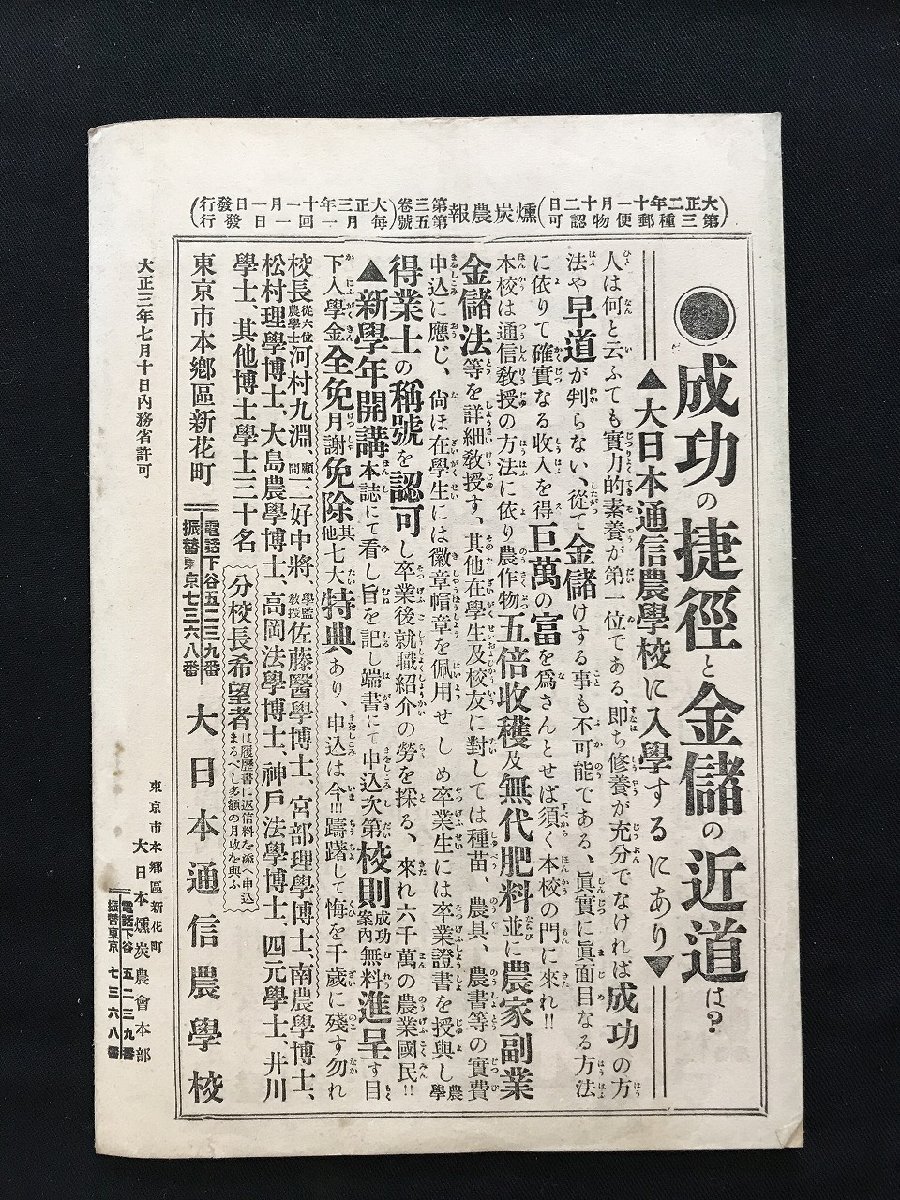 大正二年十一月十二日
第三種郵便物認可
燻炭農報
第三卷
第五號
大正三年十一月一日發行
每月一回一日發行
●成功の捷徑と金儲の近道は?
▲大日本通信農學校に入學するにあり▼
人は何と云ふても實力的素養が第一位である、即ち修養が充分でなければ成功の方
法や早道が判らない、從て金儲けする事も不可能である、眞實に眞面目なる方法
に依りて確實なる收入を得巨萬の富を爲さんとせば須く本校の門に來れ!!
本校は通信敎授の方法に依り農作物五倍收穫及無代肥料並に農家副業
金儲法等を詳細敎授す、其他在學生及校友に對しては種苗、農具、農書等の實費
申込に應じ、尙ほ在學生には徽章帽章を佩用せしめ卒業生には卒業證書を授與し農學
得業士の稱號を認可し卒業後就職紹介の勞を採る、來れ六千萬の農業國民!!
▲新學年開講本誌にて看し旨を記し端書にて申込次第校則成功案內無料進呈す目
下入學金全免月謝免除其他七大特典あり、申込は今!!躊躇して悔を千歲に殘す勿れ
校長從六位農學士河村九淵、顧問三好中將學監敎授佐藤醫學博士、宮部理學博士、南農學博士、
松村理學博士、大島農學博士、高岡法學博士、神戶法學博士、四元學士、井川
學士、其他博士學士三十名
分校長希望者は履歷書に返信料を添へ申込まるべし多額の月收を與ふ
東京市本鄕區新花町
電話下谷五二三九番
振替東京七三六八番
大日本通信農學校
大正三年七月十日內務省許可
東京市本鄕區新花町
大日本燻炭農會本部
電話下谷五二三九番
振替東京七三六八番